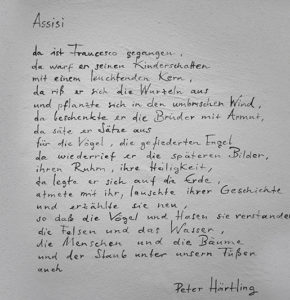 Assisi
da ist Francesco gegangen,
da warf er seinen Kinderschatten
mit einem leuchtenden Kern,
da riß er sich die Wurzeln aus
und pflanzte sich in den umbrischen Wind,
da beschenkte er die Brüder mit Armut,
da säte er Sätze aus
für die Vögel, die gefiederten Engel
da wiederrief er die späteren Bilder,
ihren Ruhm, ihre Heiligkeit,
da legte er sich auf die Erde,
atmete mit ihr, lauschte ihrer Geschichte
und erzählte sie neu,
so daß die Vögel und Hasen sie verstanden
die Felsen und das Wasser,
die Menschen und die Bäume
und der Staub unter unsern Füßen
auch
Peter Härtling